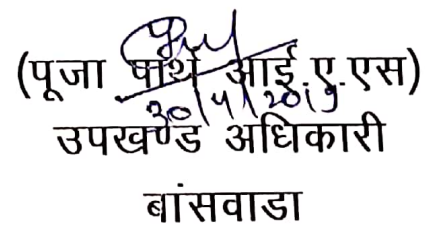 (पूजा पार्थ आई.ए.एस)
30/4/2019
उपखण्ड अधिकारी
बांसवाडा